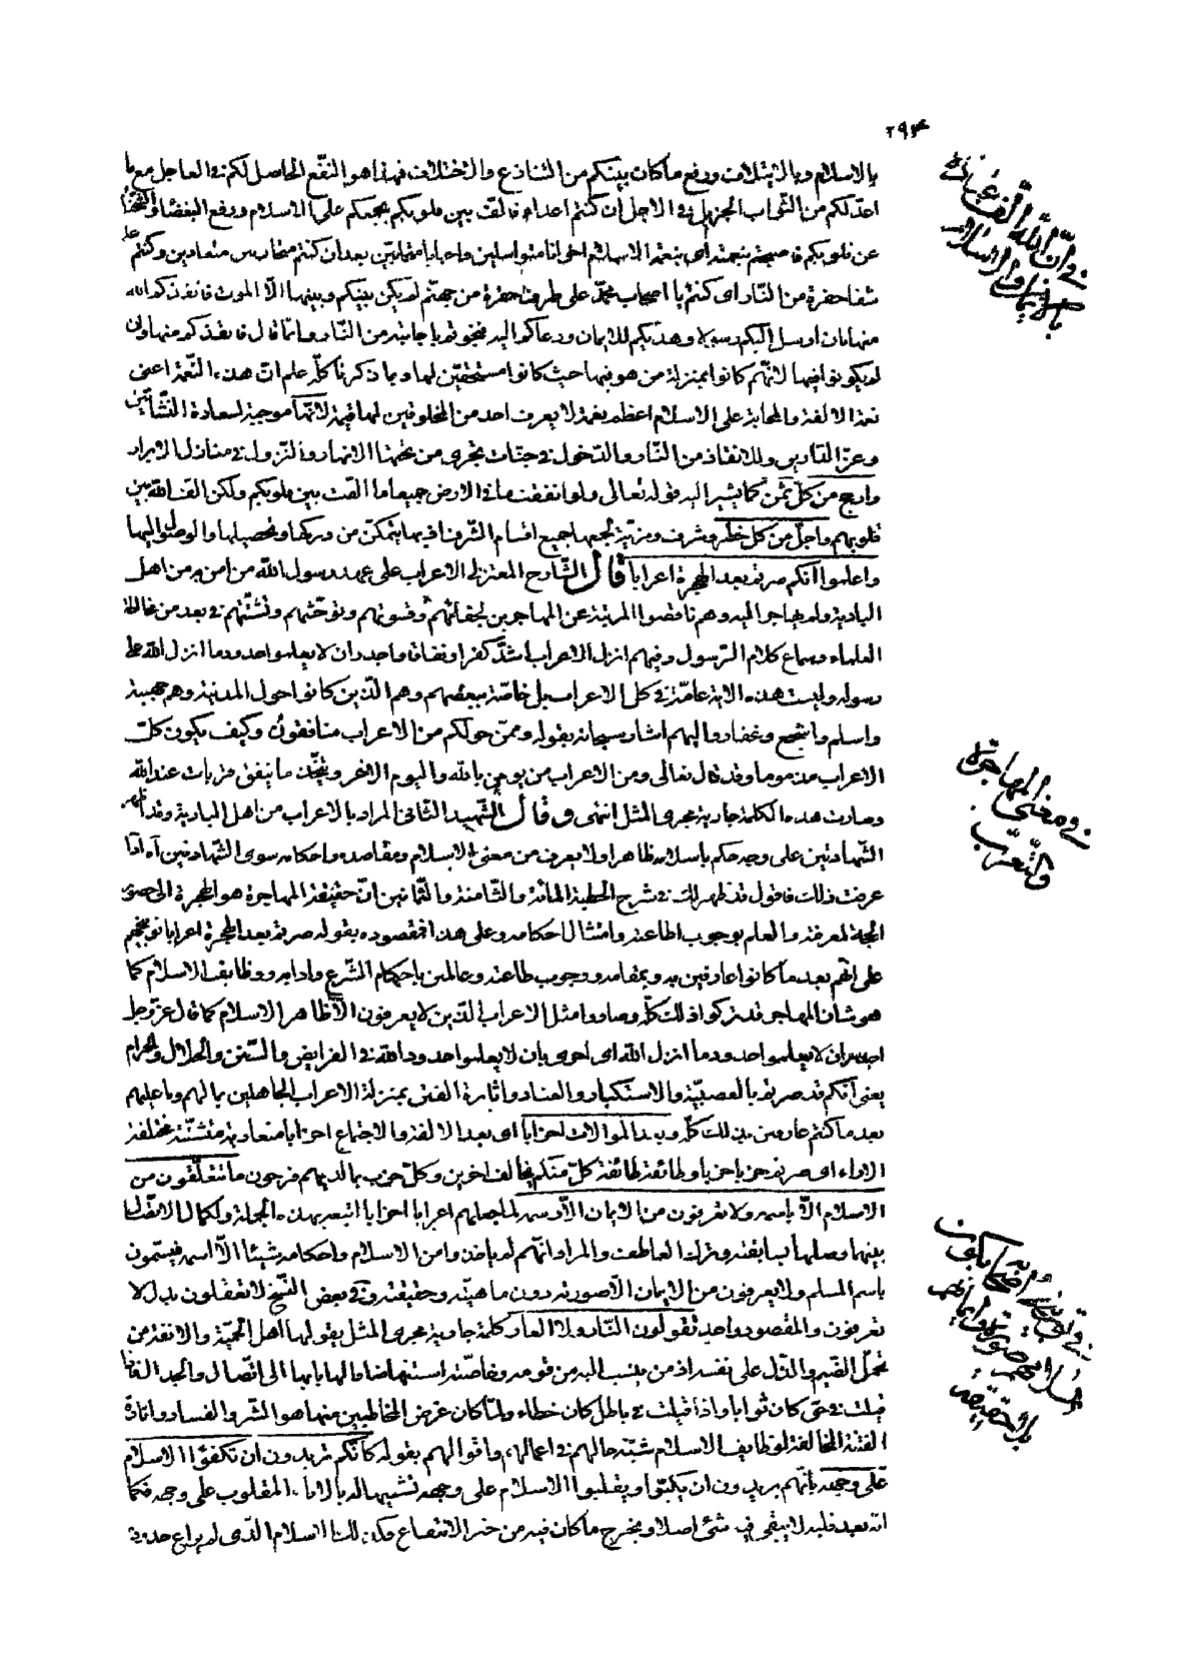 ٢٩٤
بالاسلام وبالايتلاف ودفع ما كان بينكم من التنازع والاختلاف فهذا هو النفع الحاصل لكم فى العاجل مع ما
اعدّ لكم من الثواب الجزيل فى الاجل ان كنتم اعداء فالف بين قلوبكم بجمعكم على الاسلام ورفع البغضاء والشحناء
عن قلوبكم فاصبحتم بنعمته اى بنعمة الاسلام اخوانا متواصلين واحبابا متحابين بعد ان كنتم متحاربين متعادين وكنتم على
شفا حفرة من النار اى كنتم يا اصحاب محمد على طرف حفرة من جهنم لم يكن بينكم وبينها الا الموت فانقذكم الله
منها بان ارسل اليكم رسولا وهديكم للايمان ودعاكم اليه فنجوتم باجابته من النار وانما قال فانقذكم منها وان
لم يكونوا فيها لانهم كانوا بمنزلة من هو فيها حيث كانوا مستحقين لها وبما ذكرنا كله علم ان هذه النعمة اعنى
نعمة الالفة والمحابة على الاسلام اعظم نعمة لا يعرف احد من المخلوقين لها قيمة لانها موجبة لسعادة النشأتين
وعز الدارين وللانقاذ من النار والدخول فى جنات تجرى من تحتها الانهار والنزول فى منازل الابرار
وارجح من كل ثمن كما يشير اليه قوله تعالى ولو انفقت ما فى الارض جميعا ما الفت بين قلوبكم ولكن الله الف بين
قلوبهم واجل من كل خطر وشرف ومزية لجمعها جميع اقسام الشرف اذ بها يتمكن من دركها وتحصيلها والوصول اليها
واعلموا انكم صرتم بعد الهجرة اعرابا قال الشارح المعتزلى الاعراب على عهد رسول الله من امن به من اهل
البادية ولم يهاجر اليه وهم ناقصوا المرتبة عن المهاجرين لجفائهم وقسوتهم وتوحشهم ونشئهم فى بعد من مخالطة
العلماء وسماع كلام الرسول وفيهم انزل الاعراب اشد كفرا ونفاقا واجدر ان لا يعلموا حدود ما انزل الله على
رسوله وليست هذه الاية عامة فى كل الاعراب بل خاصة ببعضهم وهم الذين كانوا حول المدينة وهم جهينة
واسلم واشجع وغفار واليهم اشار سبحانه بقوله وممن حولكم من الاعراب منافقون وكيف يكون كل
الاعراب مذموما وقد قال تعالى ومن الاعراب من يومن بالله واليوم الاخر ويتخذ ما ينفق قربات عند الله
وصارت هذه الكلمة جارية مجرى المثل انتهى وقال الشهيد الثانى المراد بالاعراب من اهل البادية وقد اظهر
الشهادتين على وجه حكم باسلامه ظاهرا ولا يعرف من معنى الاسلام ومقاصده واحكامه سوى الشهادتين اه اذا
عرفت ذلك فاقول قد ظهر لك فى شرح الخطبة المائة والثامنة والثمانين ان حقيقة المهاجرة هو الهجرة الى حضور
الحجة لمعرفته والعلم بوجوب اطاعته وامتثال احكامه وعلى هذا فمقصوده بقوله صرتم بعد الهجرة اعرابا توبيخهم
على انهم بعد ما كانوا عارفين به وبمقامه ووجوب طاعته وعالمين باحكام الشرع وادابه ووظايف الاسلام كما
هو شان المهاجر قد تركوا ذلك كله وصاروا مثل الاعراب الذين لا يعرفون الا ظاهر الاسلام كما قال عز وجل
اجدر ان لا يعلموا حدود ما انزل الله اى احرى بان لا يعلموا حدود الله فى الفرايض والسنن والحلال والحرام
يعنى انكم قد صرتم بالعصبية والاستكبار والعناد واثارة الفتن بمنزلة الاعراب الجاهلين بما لهم وما عليهم
بعد ما كنتم عارفين بذلك كله وبعد الموالات احزابا اى بعد الالفة والاجتماع احزابا متعادية متشتتة مختلفة
الاراء اى صرتم حزبا حزبا وطائفة طائفة كل منكم يخالف اخرين وكل حزب بما لديهم فرحون ما تتعلقون من
الاسلام الا باسمه ولا تعرفون من الايمان الا رسمه لما جعلهم اعرابا احزابا اتبعه بهذه الجملة ولكمال الاتصال
بينها وصلها بسابقته وترك العاطف والمراد انهم لم ياخذوا من الاسلام واحكامه شيئا الا اسمه فيسمون
باسم المسلم ولا يعرفون من الايمان الا صورته دون ماهيته وحقيقته وفى بعض النسخ لا تعقلون بدل لا
تعرفون والمقصود واحد تقولون النار ولا العار كلمة جارية مجرى المثل يقولها اهل الحمية والانفة من
تحمل الضيم والذل على نفسه او من ينسب اليه من قومه وخاصته استنهاضا لها بابها الى القتال والجدال فاذا
قيلت فى حق كان ثوابا واذا قيلت فى باطل كان خطاء ولما كان غرض المخاطبين منها هو الشر والفساد واثارة
الفتنة المخالفة لوظايف الاسلام شبه حالهم فى اعمالهم واقوالهم بقوله كانكم تريدون ان تكفئوا الاسلام
على وجهه بانهم يريدون ان يكبوا ويقلبوا الاسلام على وجهه تشبيها له بالاناء المقلوب على وجهه فكما
انه بعد قلبه لا يبقى فيه شئ اصلا ويخرج ما كان فيه من حيز الانتفاع فكذلك الاسلام الذى لم يراع حدوده
فى ان الله الف
بالايمان والاسلام
فى معنى المهاجرة
والتعرب